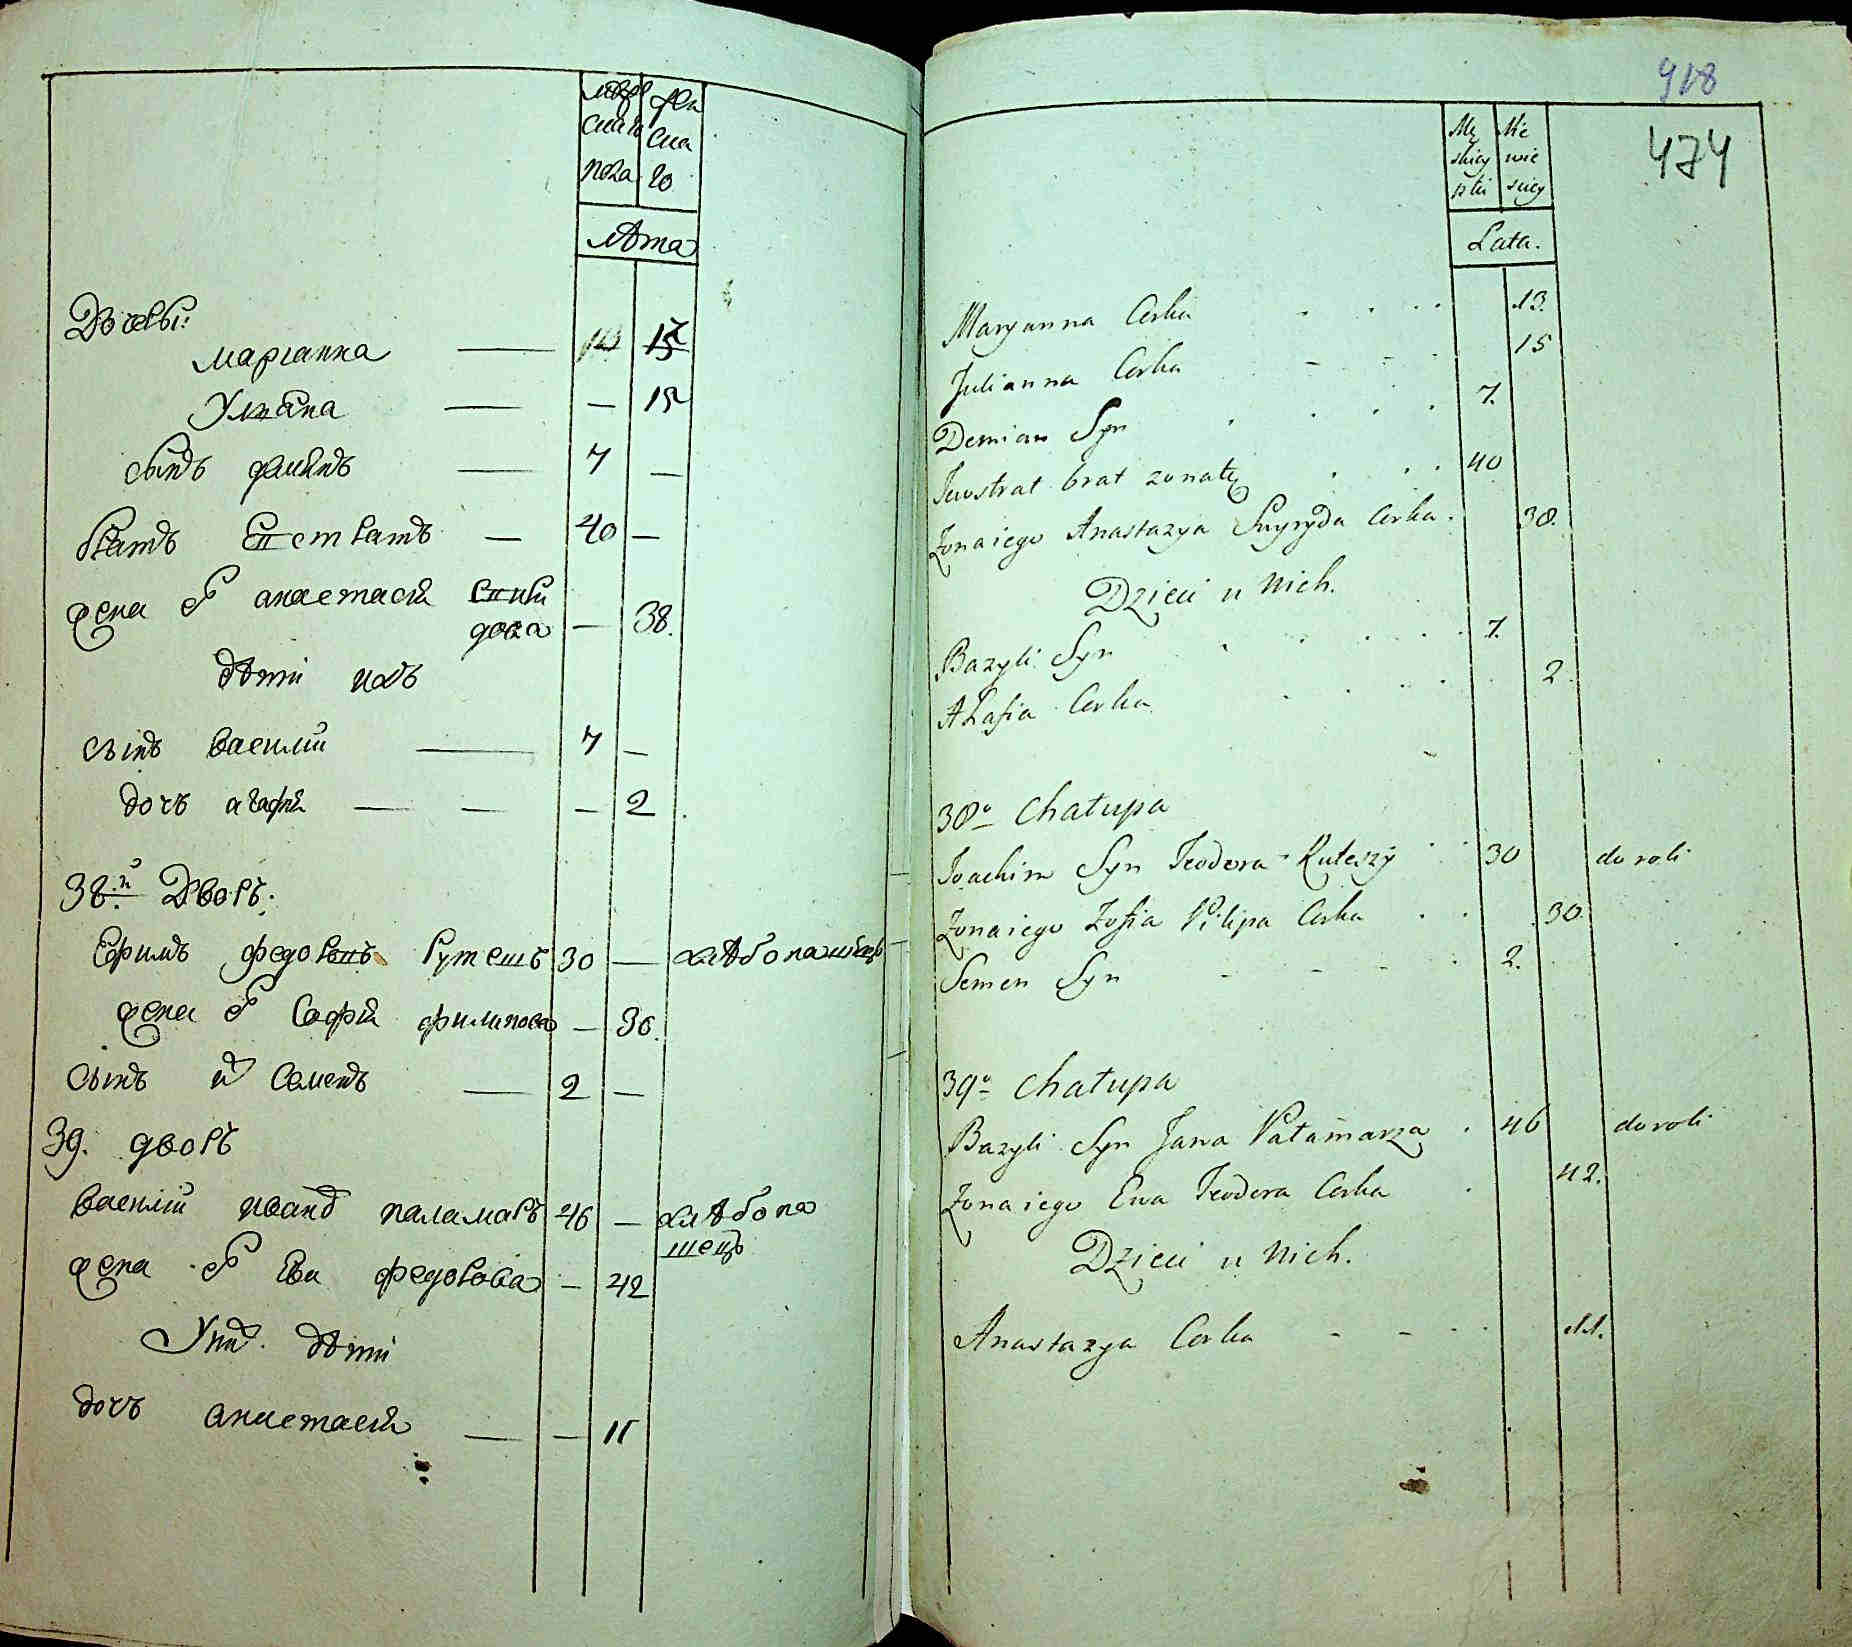 ска го
пола
лѣта
Дочеры:
марианна — 15
Улияна — — 15
сынъ — 7 —
братъ Евстратъ — 40 —
жена его анастасия спири
дова — 38.
дѣти ихъ
сынъ василий — 7 —
дочь агафия — — — 2
38.й Дворъ:
Ефимъ федоровъ Рутешъ 30 — хлѣбопашецъ
жена его София филипова — 30.
сынъ их Семенъ — 2 —
39. дворъ
василий иванов паламаръ 46 — хлѣбопа
шецъ
жена его Ева федорова — 42
У них дѣти
дочь анастасия — — 11
918
474
Mę Nie
skiey wie
płci sciey
Lata.
Maryanna Corka . . . . 13.
Julianna Corka - - - 15
Demian Syn . . . . 7.
Jewstrat brat zonaty . . . 40
Zona iego Anastazya Spyryda Corka . 38.
Dzieci u nich.
Bazyli Syn . . . . . 7.
Ahafia Corka . . . . . 2.
38o Chałupa
Joachim Syn Teodora Ruteszy . . 30 do roli
Zona iego Zofia Filipa Corka . . . 30.
Semen Syn - - - . 2.
39o Chałupa
Bazyli Syn Jana Pałamarza . 46 do roli
Zona iego Ewa Teodora Corka . 42.
Dzieci u nich.
Anastazya Corka - - . . 11.